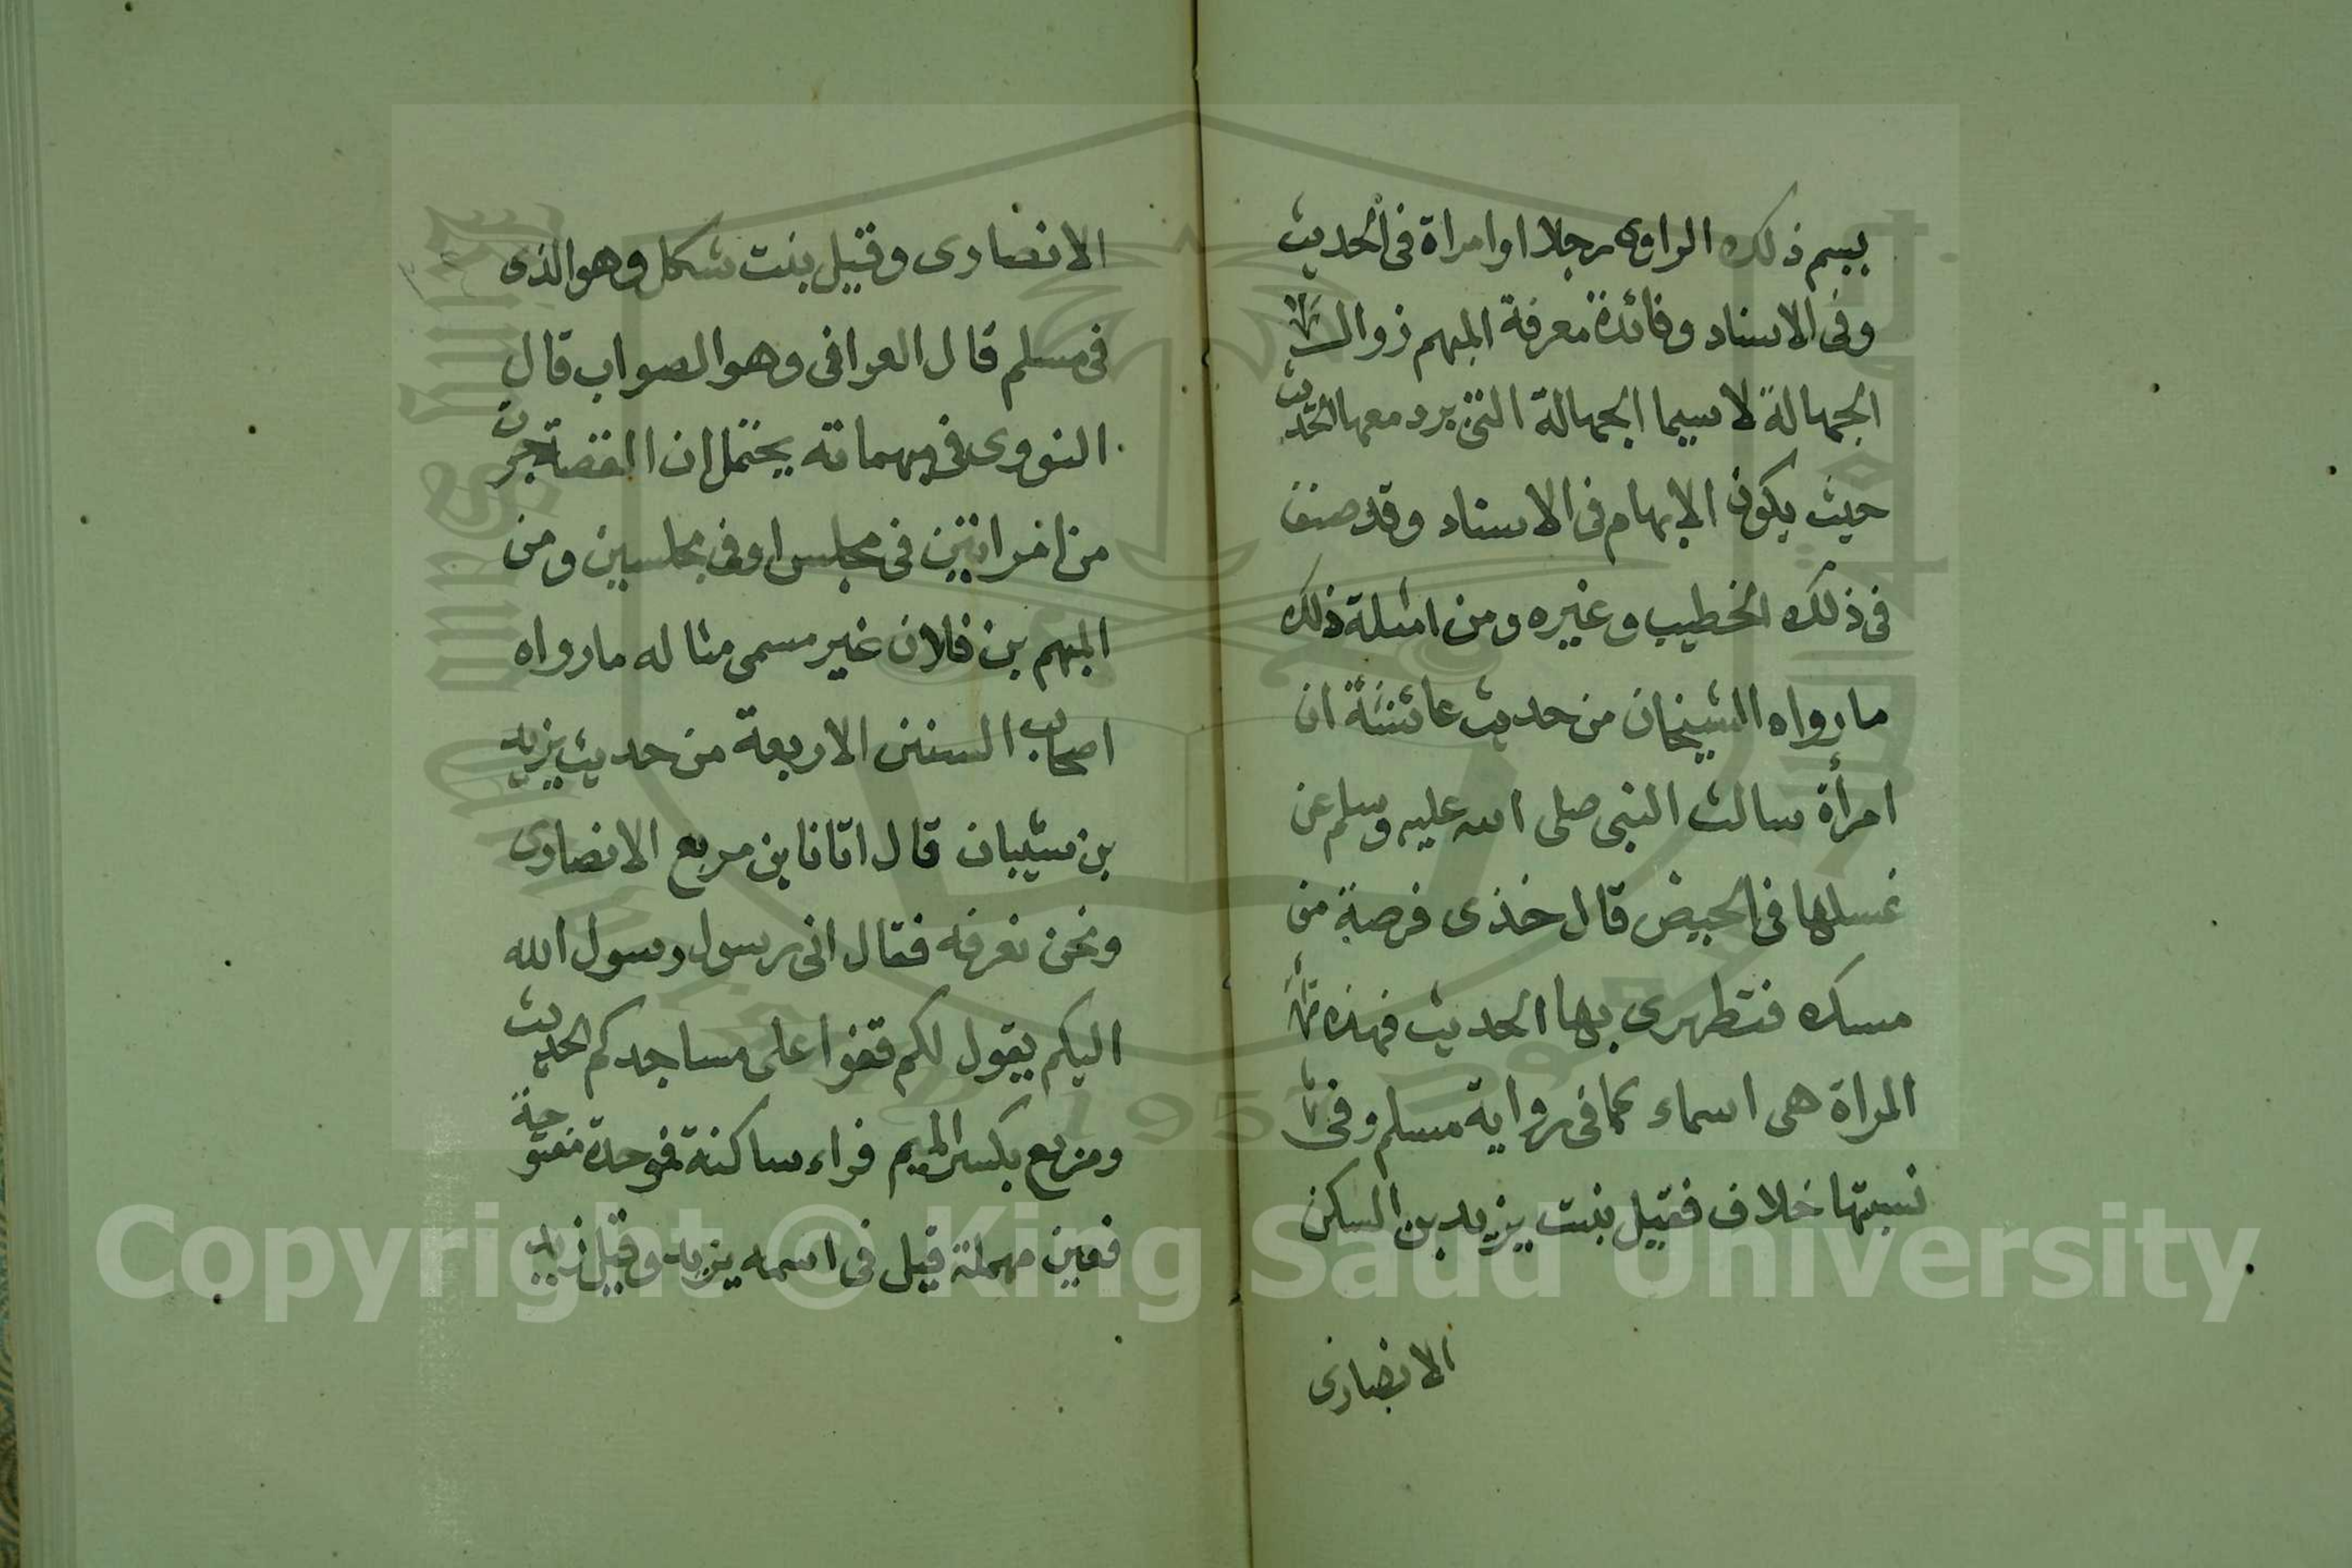 يسم ذلك الراوى رجلا او امراة فى الحديث
وفى الاسناد وفائدة معرفة المبهم زوال
الجهالة لاسيما الجهالة التى يرد معها الحديث
حيث يكون الابهام فى الاسناد وقد صنف
فى ذلك الخطيب وغيره ومن امثلة ذلك
ما رواه الشيخان من حديث عائشة ان
امرأة سالت النبى صلى الله عليه وسلم عن
غسلها فى الحيض قال خذى فرصة من
مسك فتطهرى بها الحديث فهذه
المراة هى اسماء كما فى رواية مسلم وفى
نسبتها خلاف فقيل بنت يزيد بن السكن
الانصارى
الانصارى وقيل بنت شكل وهو الذى
فى مسلم قال العراقى وهو الصواب قال
النووى فى مبهماته يحتمل ان القصة جرت
من امراتين فى مجلس او فى مجلسين ومن
المبهم بن فلان غير مسمى مثاله ما رواه
اصحاب السنن الاربعة من حديث يزيد
بن شيبان قال اتانا بن مربع الانصارى
ونحن نعرفه فقال انى رسول رسول الله
اليكم يقول لكم قفوا على مساجدكم الحديث
ومربع بكسر الميم فراء ساكنة فموحدة مفتوحة
فعين مهملة قيل فى اسمه يزيد وقيل زيد
Copyright © King Saud University
1957